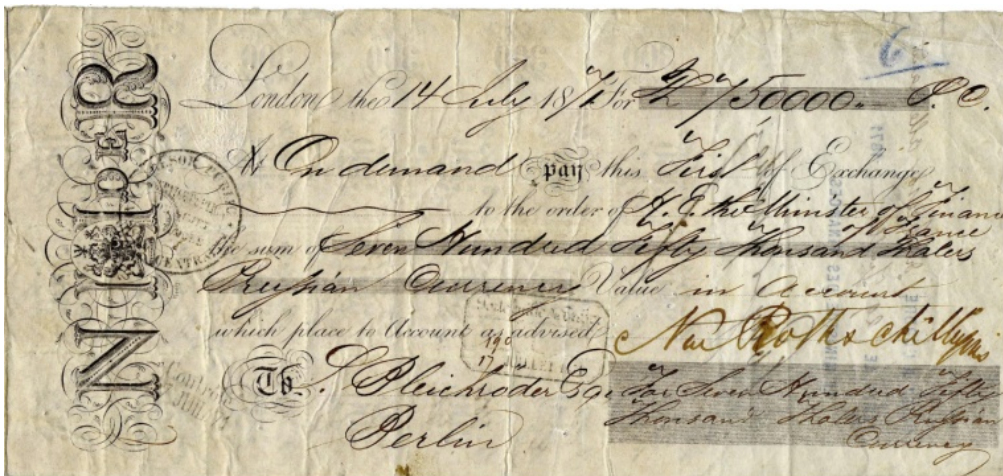 London the 14 July 1871 For 750000 P. C.
At On demand pay this First of Exchange
to the order of H. E. the Minister of Finance
of France
the sum of Seven Hundred Fifty Thousand Thalers
Prussian Currency Value in Account
which place to Account as advised
To S. Bleichröder Esqe
Berlin
For Seven Hundred Fifty
Thousand Thalers Prussian
Currency
N M DE R
TRESOR PUBLIC
CENTRAL